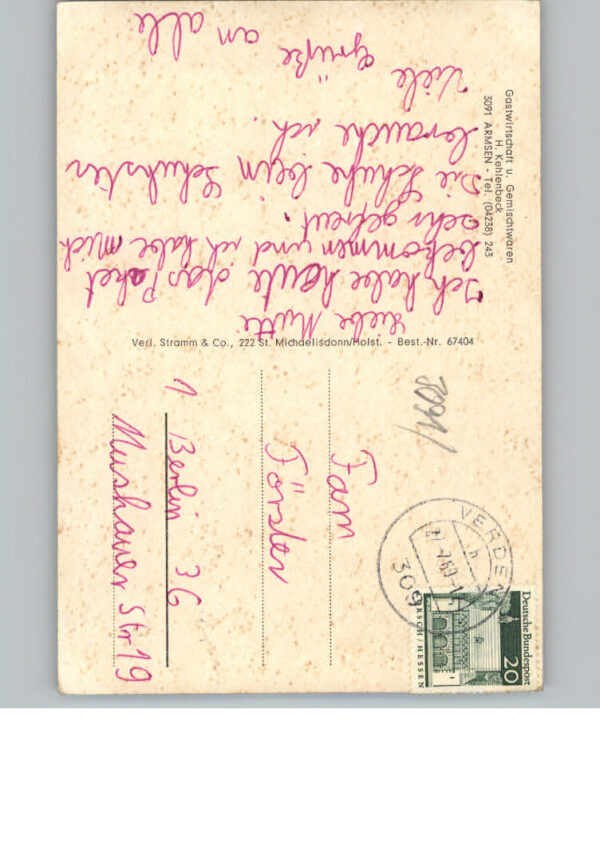 Gastwirtschaft u. Gemischtwaren
H. Kehlenbeck
3091 ARMSEN - Tel. (04238) 243
Liebe Mutti
Ich habe heute das Paket
bekommen und ich habe mich
sehr gefreut.
Die Schuhe beim Schuhster
brauche ich.
Viele Grüße an alle
Verl. Stramm & Co., 222 St. Michaelisdonn/Holst. - Best.-Nr. 67404
3091
VERDEN
309
Deutsche Bundespost
20
LORSCH/HESSEN
Fam
Förster
1 Berlin 36
Str 19